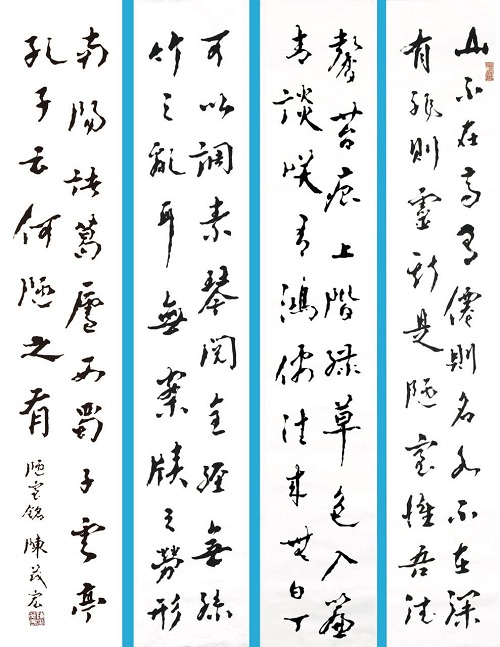 山不在高有僊則名水不在深
有龍則靈斯是陋室惟吾德
馨苔痕上階綠草色入簾
青談咲有鴻儒往來無白丁
可以調素琴閱金經無絲
竹之亂耳無案牘之勞形
南陽諸葛廬西蜀子雲亭
孔子云何陋之有
陋室銘 陳茂宏